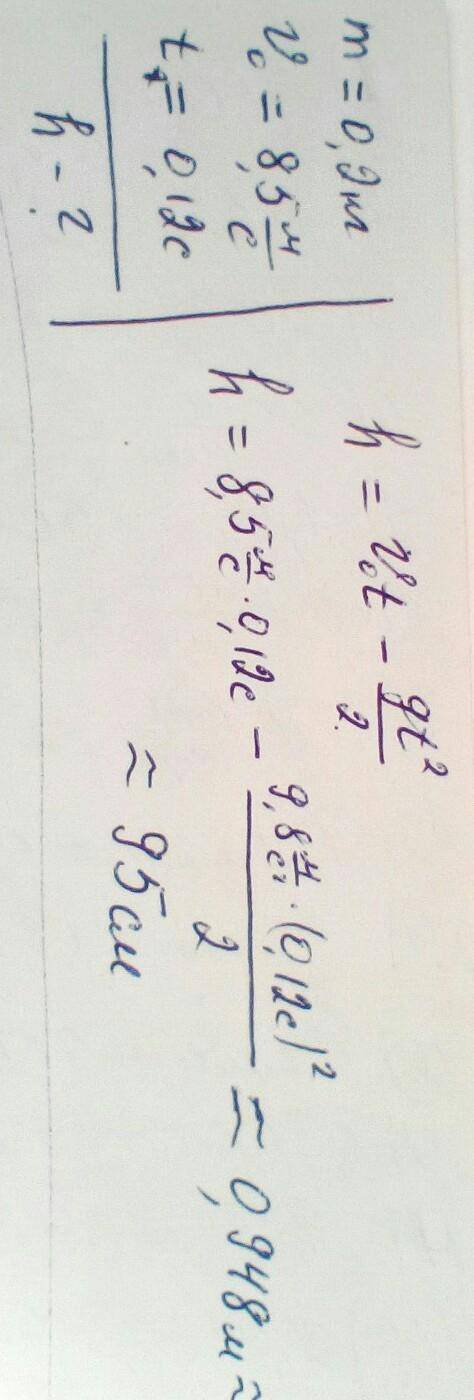 m = 0,2кг
v₀ = 8,5 м/с
t = 0,12с
h - ?
h = v₀t - gt²/2
h = 8,5 м/с · 0,12с - 9,8 м/с² · (0,12с)²/2 ≈ 0,948м ≈
≈ 95см